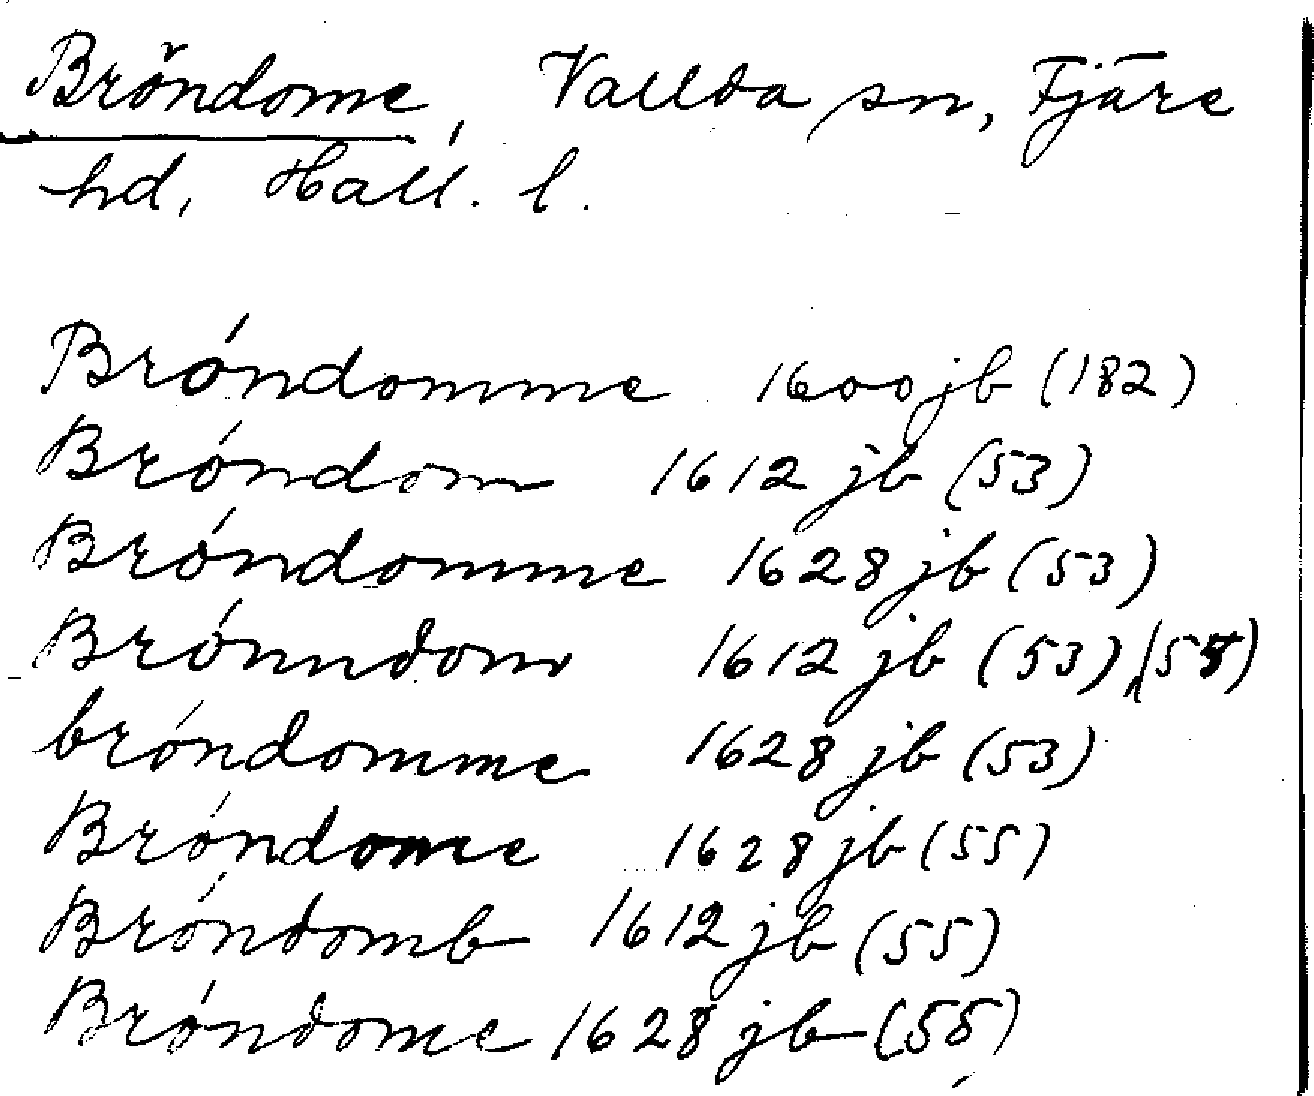 Bröndome, Vallda sn, Fjäre
hd, Hall. l.
Bróndomme 1600 jb (182)
Bróndom 1612 jb (53)
Bróndomme 1628 jb (53)
Brónndom 1612 jb (53), (55)
bróndomme 1628 jb (53)
Bróndome 1628 jb (55)
Bróndomb 1612 jb (55)
Bróndome 1628 jb (55)